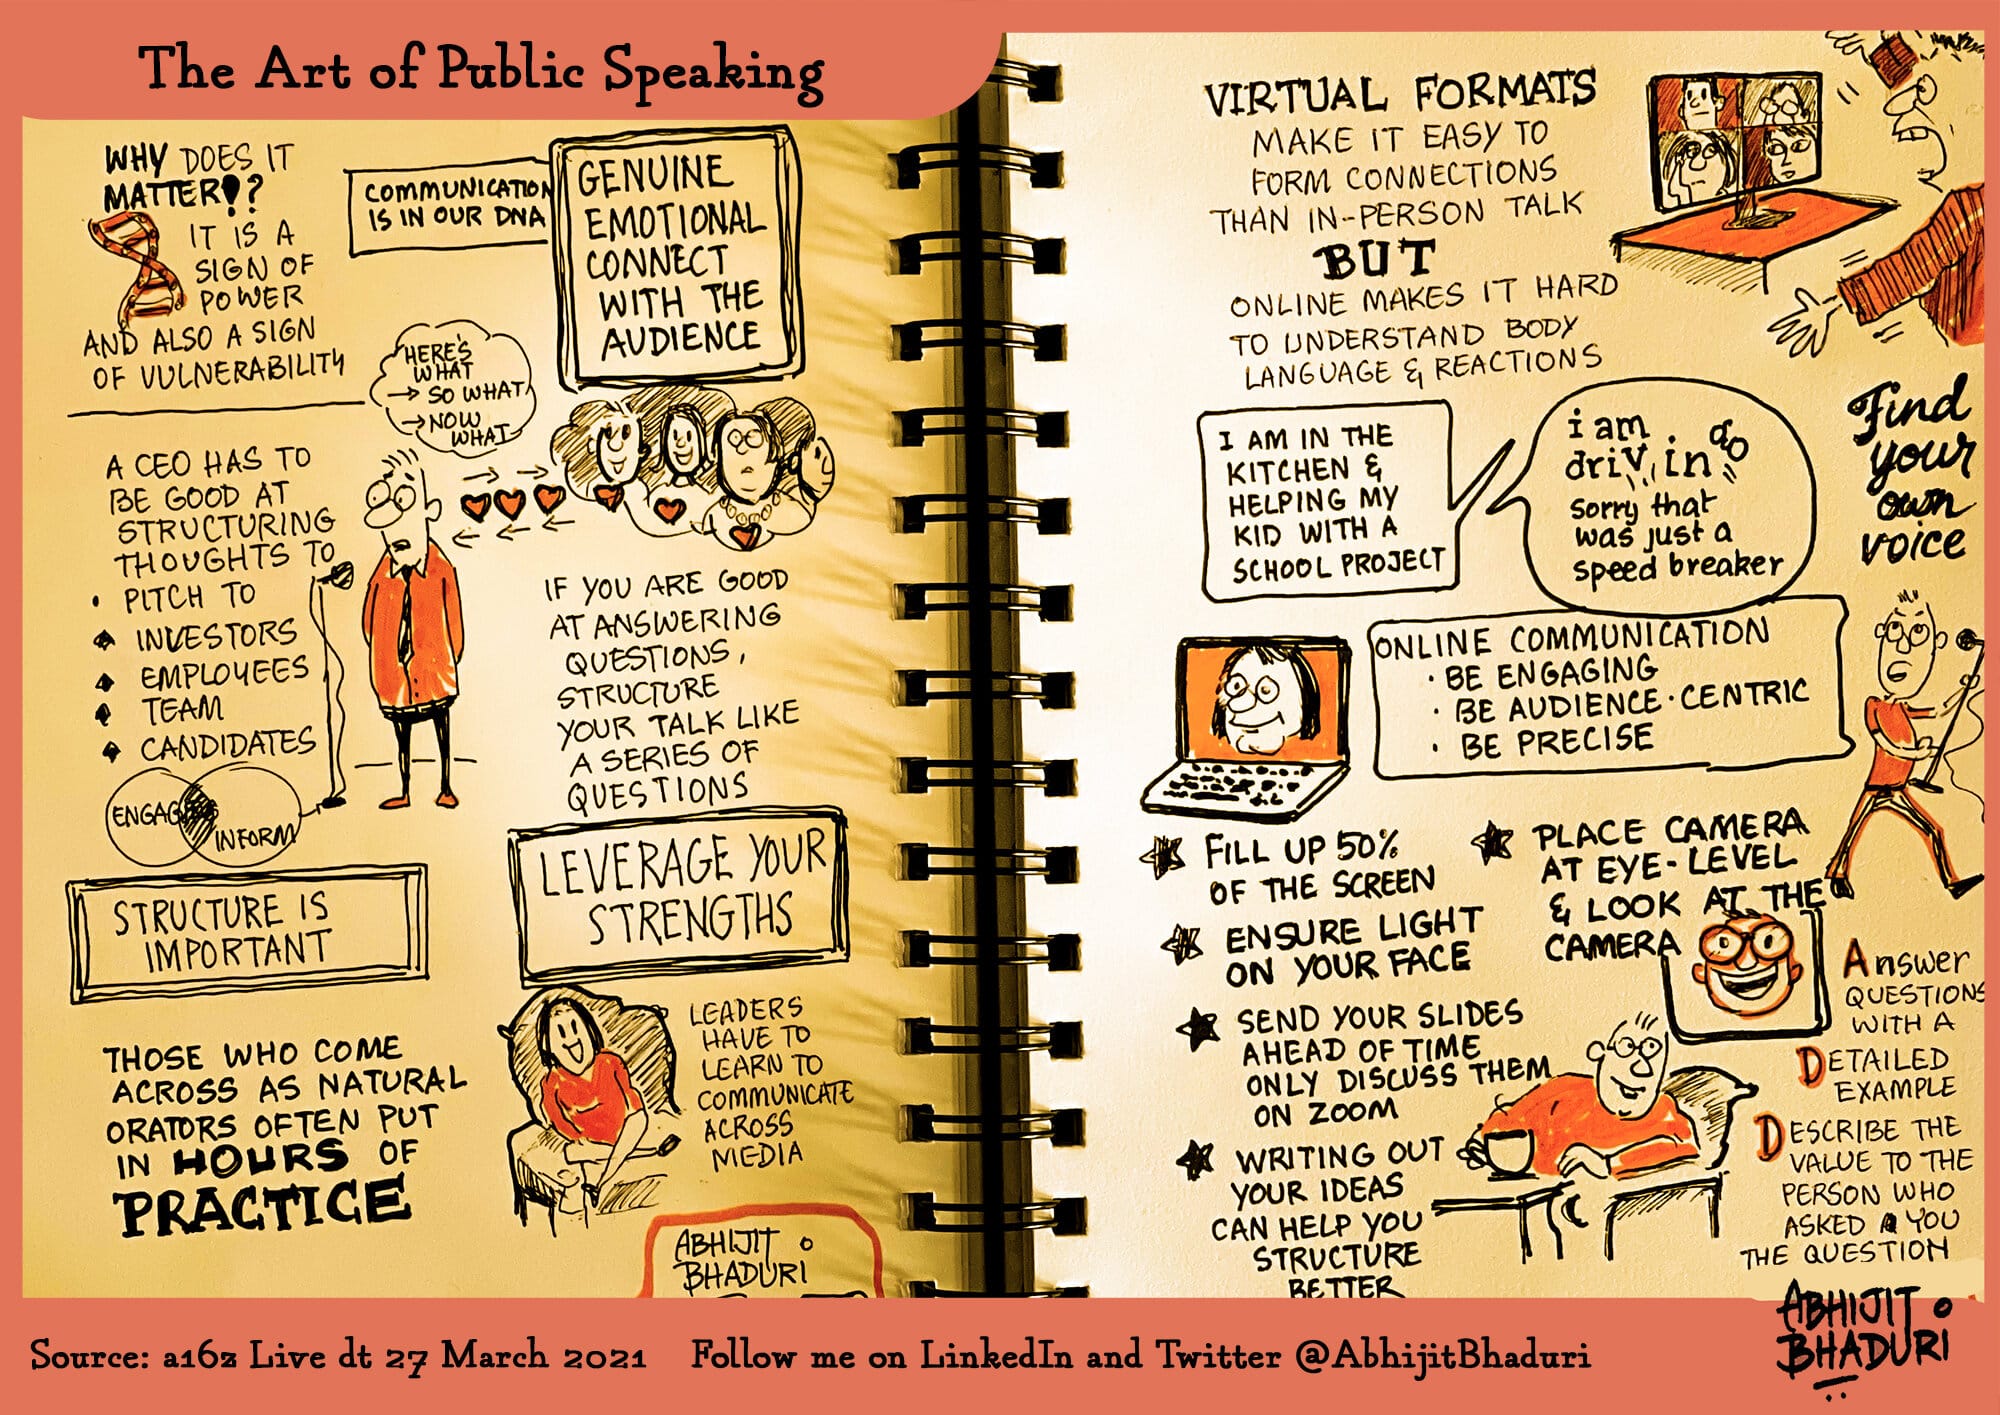 The Art of Public Speaking
WHY DOES IT
MATTER!?
IT IS A
SIGN OF
POWER
AND ALSO A SIGN
OF VULNERABILITY
COMMUNICATION
IS IN OUR DNA
GENUINE
EMOTIONAL
CONNECT
WITH THE
AUDIENCE
HERE'S
WHAT
→ SO WHAT
→ NOW
WHAT
A CEO HAS TO
BE GOOD AT
STRUCTURING
THOUGHTS TO
• PITCH TO
◆ INVESTORS
◆ EMPLOYEES
◆ TEAM
◆ CANDIDATES
ENGAG
INFORM
STRUCTURE IS
IMPORTANT
THOSE WHO COME
ACROSS AS NATURAL
ORATORS OFTEN PUT
IN HOURS OF
PRACTICE
IF YOU ARE GOOD
AT ANSWERING
QUESTIONS,
STRUCTURE
YOUR TALK LIKE
A SERIES OF
QUESTIONS
LEVERAGE YOUR
STRENGTHS
LEADERS
HAVE TO
LEARN TO
COMMUNICATE
ACROSS
MEDIA
ABHIJIT
BHADURI
VIRTUAL FORMATS
MAKE IT EASY TO
FORM CONNECTIONS
THAN IN-PERSON TALK
BUT
ONLINE MAKES IT HARD
TO UNDERSTAND BODY
LANGUAGE & REACTIONS
I AM IN THE
KITCHEN &
HELPING MY
KID WITH A
SCHOOL PROJECT
i am
driving
sorry that
was just a
speed breaker
Find
your
own
voice
ONLINE COMMUNICATION
• BE ENGAGING
• BE AUDIENCE-CENTRIC
• BE PRECISE
★ FILL UP 50%
OF THE SCREEN
★ ENSURE LIGHT
ON YOUR FACE
★ SEND YOUR SLIDES
AHEAD OF TIME
ONLY DISCUSS THEM
ON ZOOM
★ WRITING OUT
YOUR IDEAS
CAN HELP YOU
STRUCTURE
BETTER
★ PLACE CAMERA
AT EYE-LEVEL
& LOOK AT THE
CAMERA
ANSWER
QUESTIONS
WITH A
DETAILED
EXAMPLE
DESCRIBE THE
VALUE TO THE
PERSON WHO
ASKED YOU
THE QUESTION
ABHIJIT
BHADURI
Source: a16z Live dt 27 March 2021 Follow me on LinkedIn and Twitter @AbhijitBhaduri